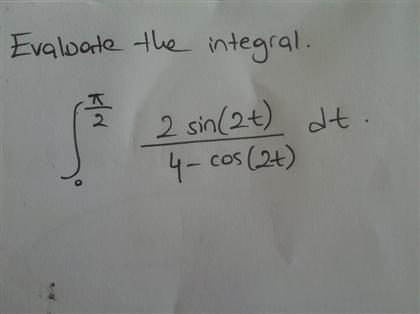 Evaluate the integral.
∫₀^(π/2) 2 sin(2t) / (4 - cos(2t)) dt.